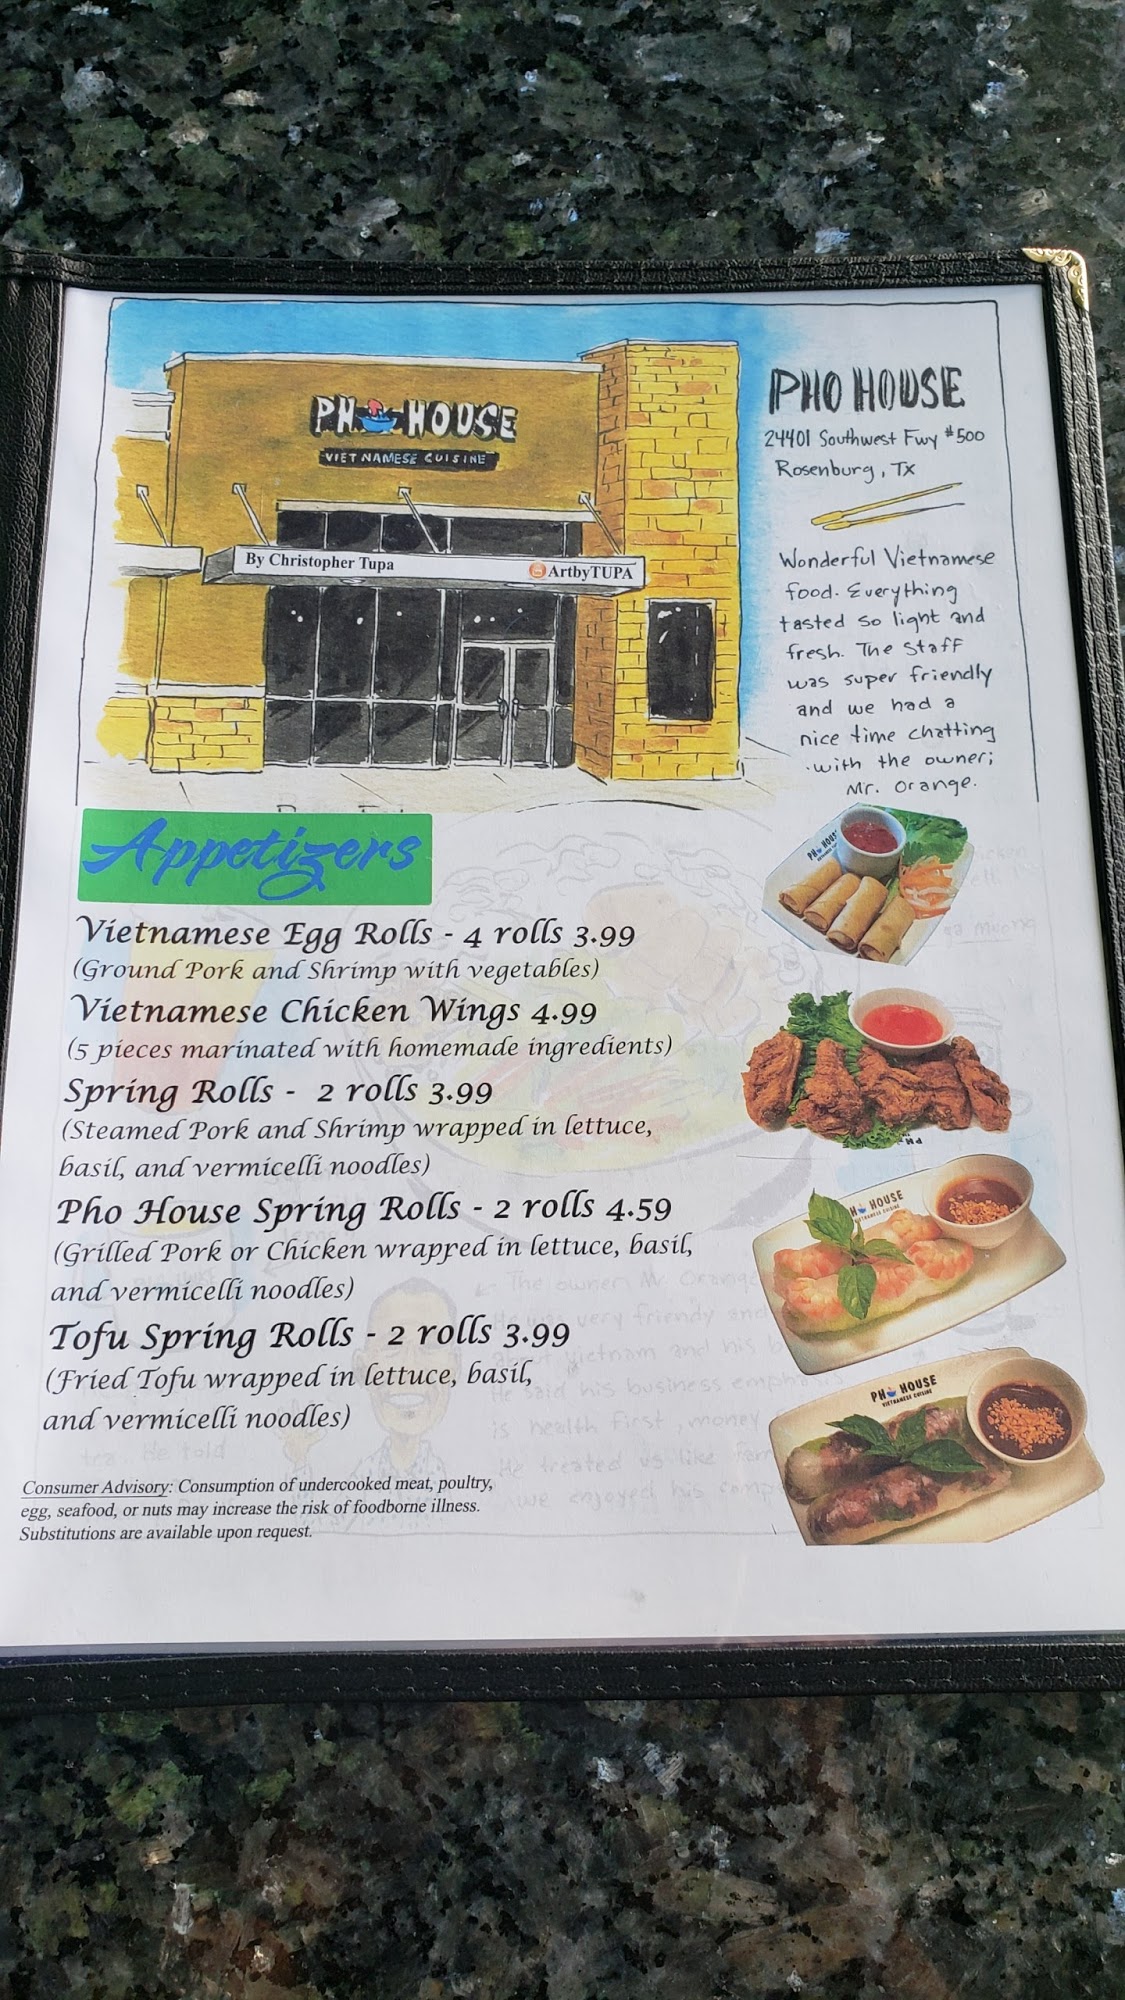 PHO HOUSE
VIETNAMESE CUISINE
By Christopher Tupa
ArtbyTUPA
PHO HOUSE
24401 Southwest Fwy #500
Rosenburg, Tx
Wonderful Vietnamese
food. Everything
tasted so light and
fresh. The staff
was super friendly
and we had a
nice time chatting
with the owner;
Mr. Orange.
Appetizers
Vietnamese Egg Rolls - 4 rolls 3.99
(Ground Pork and Shrimp with vegetables)
Vietnamese Chicken Wings 4.99
(5 pieces marinated with homemade ingredients)
Spring Rolls - 2 rolls 3.99
(Steamed Pork and Shrimp wrapped in lettuce,
basil, and vermicelli noodles)
Pho House Spring Rolls - 2 rolls 4.59
(Grilled Pork or Chicken wrapped in lettuce, basil,
and vermicelli noodles)
Tofu Spring Rolls - 2 rolls 3.99
(Fried Tofu wrapped in lettuce, basil,
and vermicelli noodles)
Consumer Advisory: Consumption of undercooked meat, poultry,
egg, seafood, or nuts may increase the risk of foodborne illness.
Substitutions are available upon request.
PHO HOUSE
PHO HOUSE
VIETNAMESE CUISINE
PHO HOUSE
VIETNAMESE CUISINE
The owner, Mr. Orange
very friendly and
vietnam and his
He said his business emphasis
is health first, money
He treated us like
we enjoyed his
tea. He told